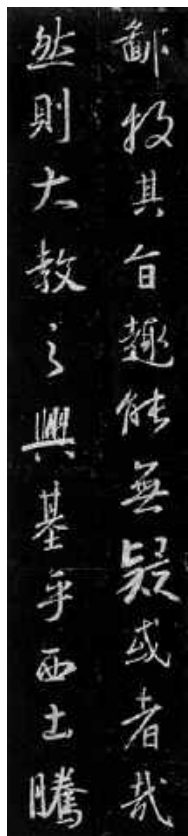 鄙投其旨趣能無疑或者哉
然則大教之興基乎西土騰